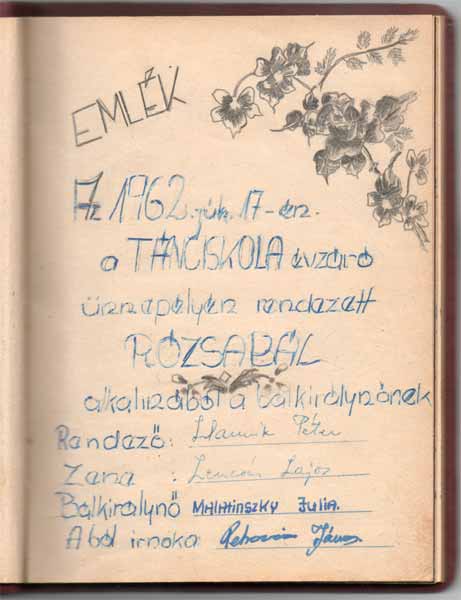 EMLÉK
Az 1962. júl. 17-én.
a TÁNCISKOLA évzáró
ünnepélyén rendezett
RÓZSABÁL
alkalmából a bálkirálynőnek
Rendező: Péter
Zene : Lajos
Bálkirálynő MALATINSZKY JULIA.
A bál irnoka: János